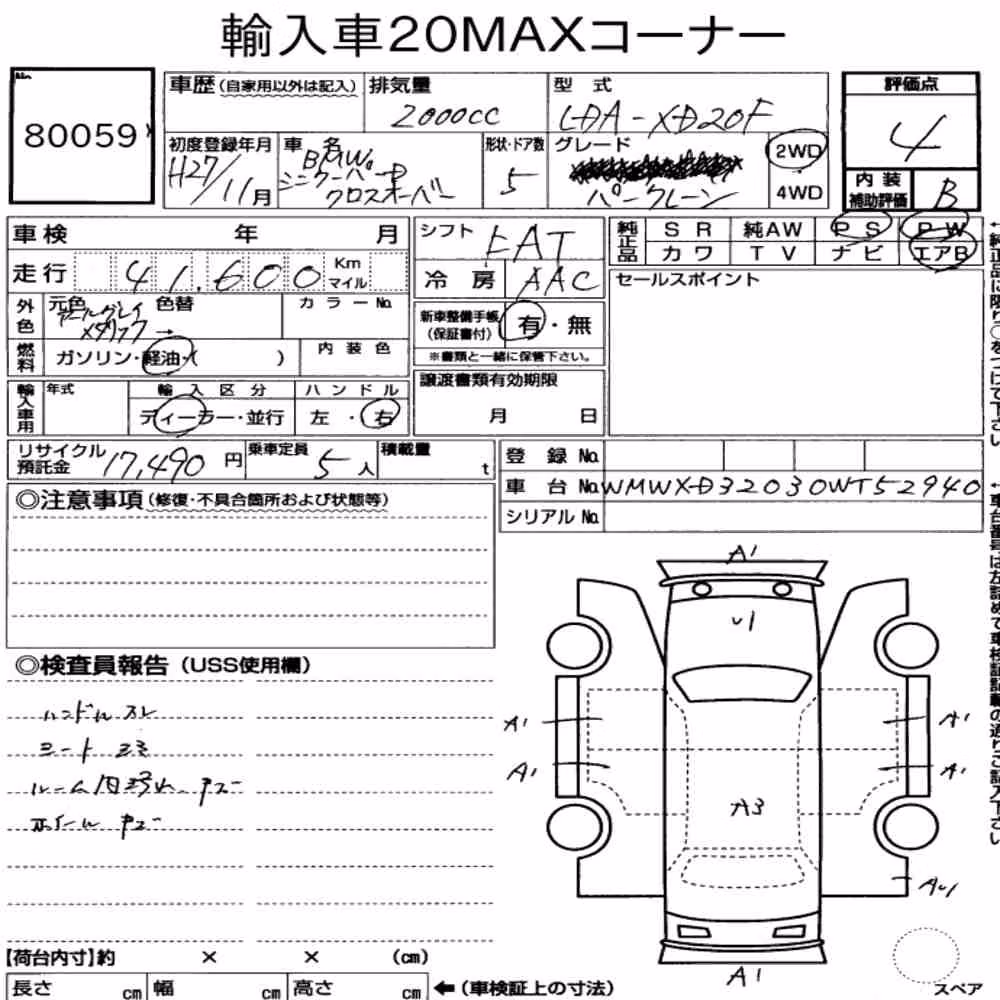 輸入車20MAXコーナー
No.
80059
車歴 (自家用以外は記入)
排気量
2000CC
型式
LDA-XD20F
評価点
4
初度登録年月
H27/11月
車名
BMW
ミニクーパーD
クロスオーバー
形状・ドア数
5
グレード
パークレーン
2WD
4WD
内装
補助評価
B
車検 年 月
走行 41,600 Km
マイル
シフト
FAT
冷房
AAC
純正品
SR 純AW PS PW
カワ TV ナビ エアB
セールスポイント
外色
元色
アールグレイ
メタリック →
色替
カラーNo.
燃料
ガソリン・軽油・( )
内装色
新車整備手帳
(保証書付)
有・無
※書類と一緒に保管下さい。
輸入車用
年式
輸入区分
ディーラー・並行
ハンドル
左・右
譲渡書類有効期限
月 日
リサイクル
預託金
17,490円
乗車定員
5人
積載量
t
登録No.
車台No. WMWXD32030WT52940
シリアルNo.
◎注意事項(修復・不具合箇所および状態等)
◎検査員報告(USS使用欄)
ハンドルスレ
シートシミ
ルーム内
ホイールキズ
A1
U1
A1
A1
A1
A1
A3
A1
スペア
【荷台内寸】約 × × (cm)
長さ cm 幅 cm 高さ cm ←(車検証上の寸法)
↑純正品に限り○をつけて下さい
↑車台番号は左詰めで車検証記載の通りご記入下さい